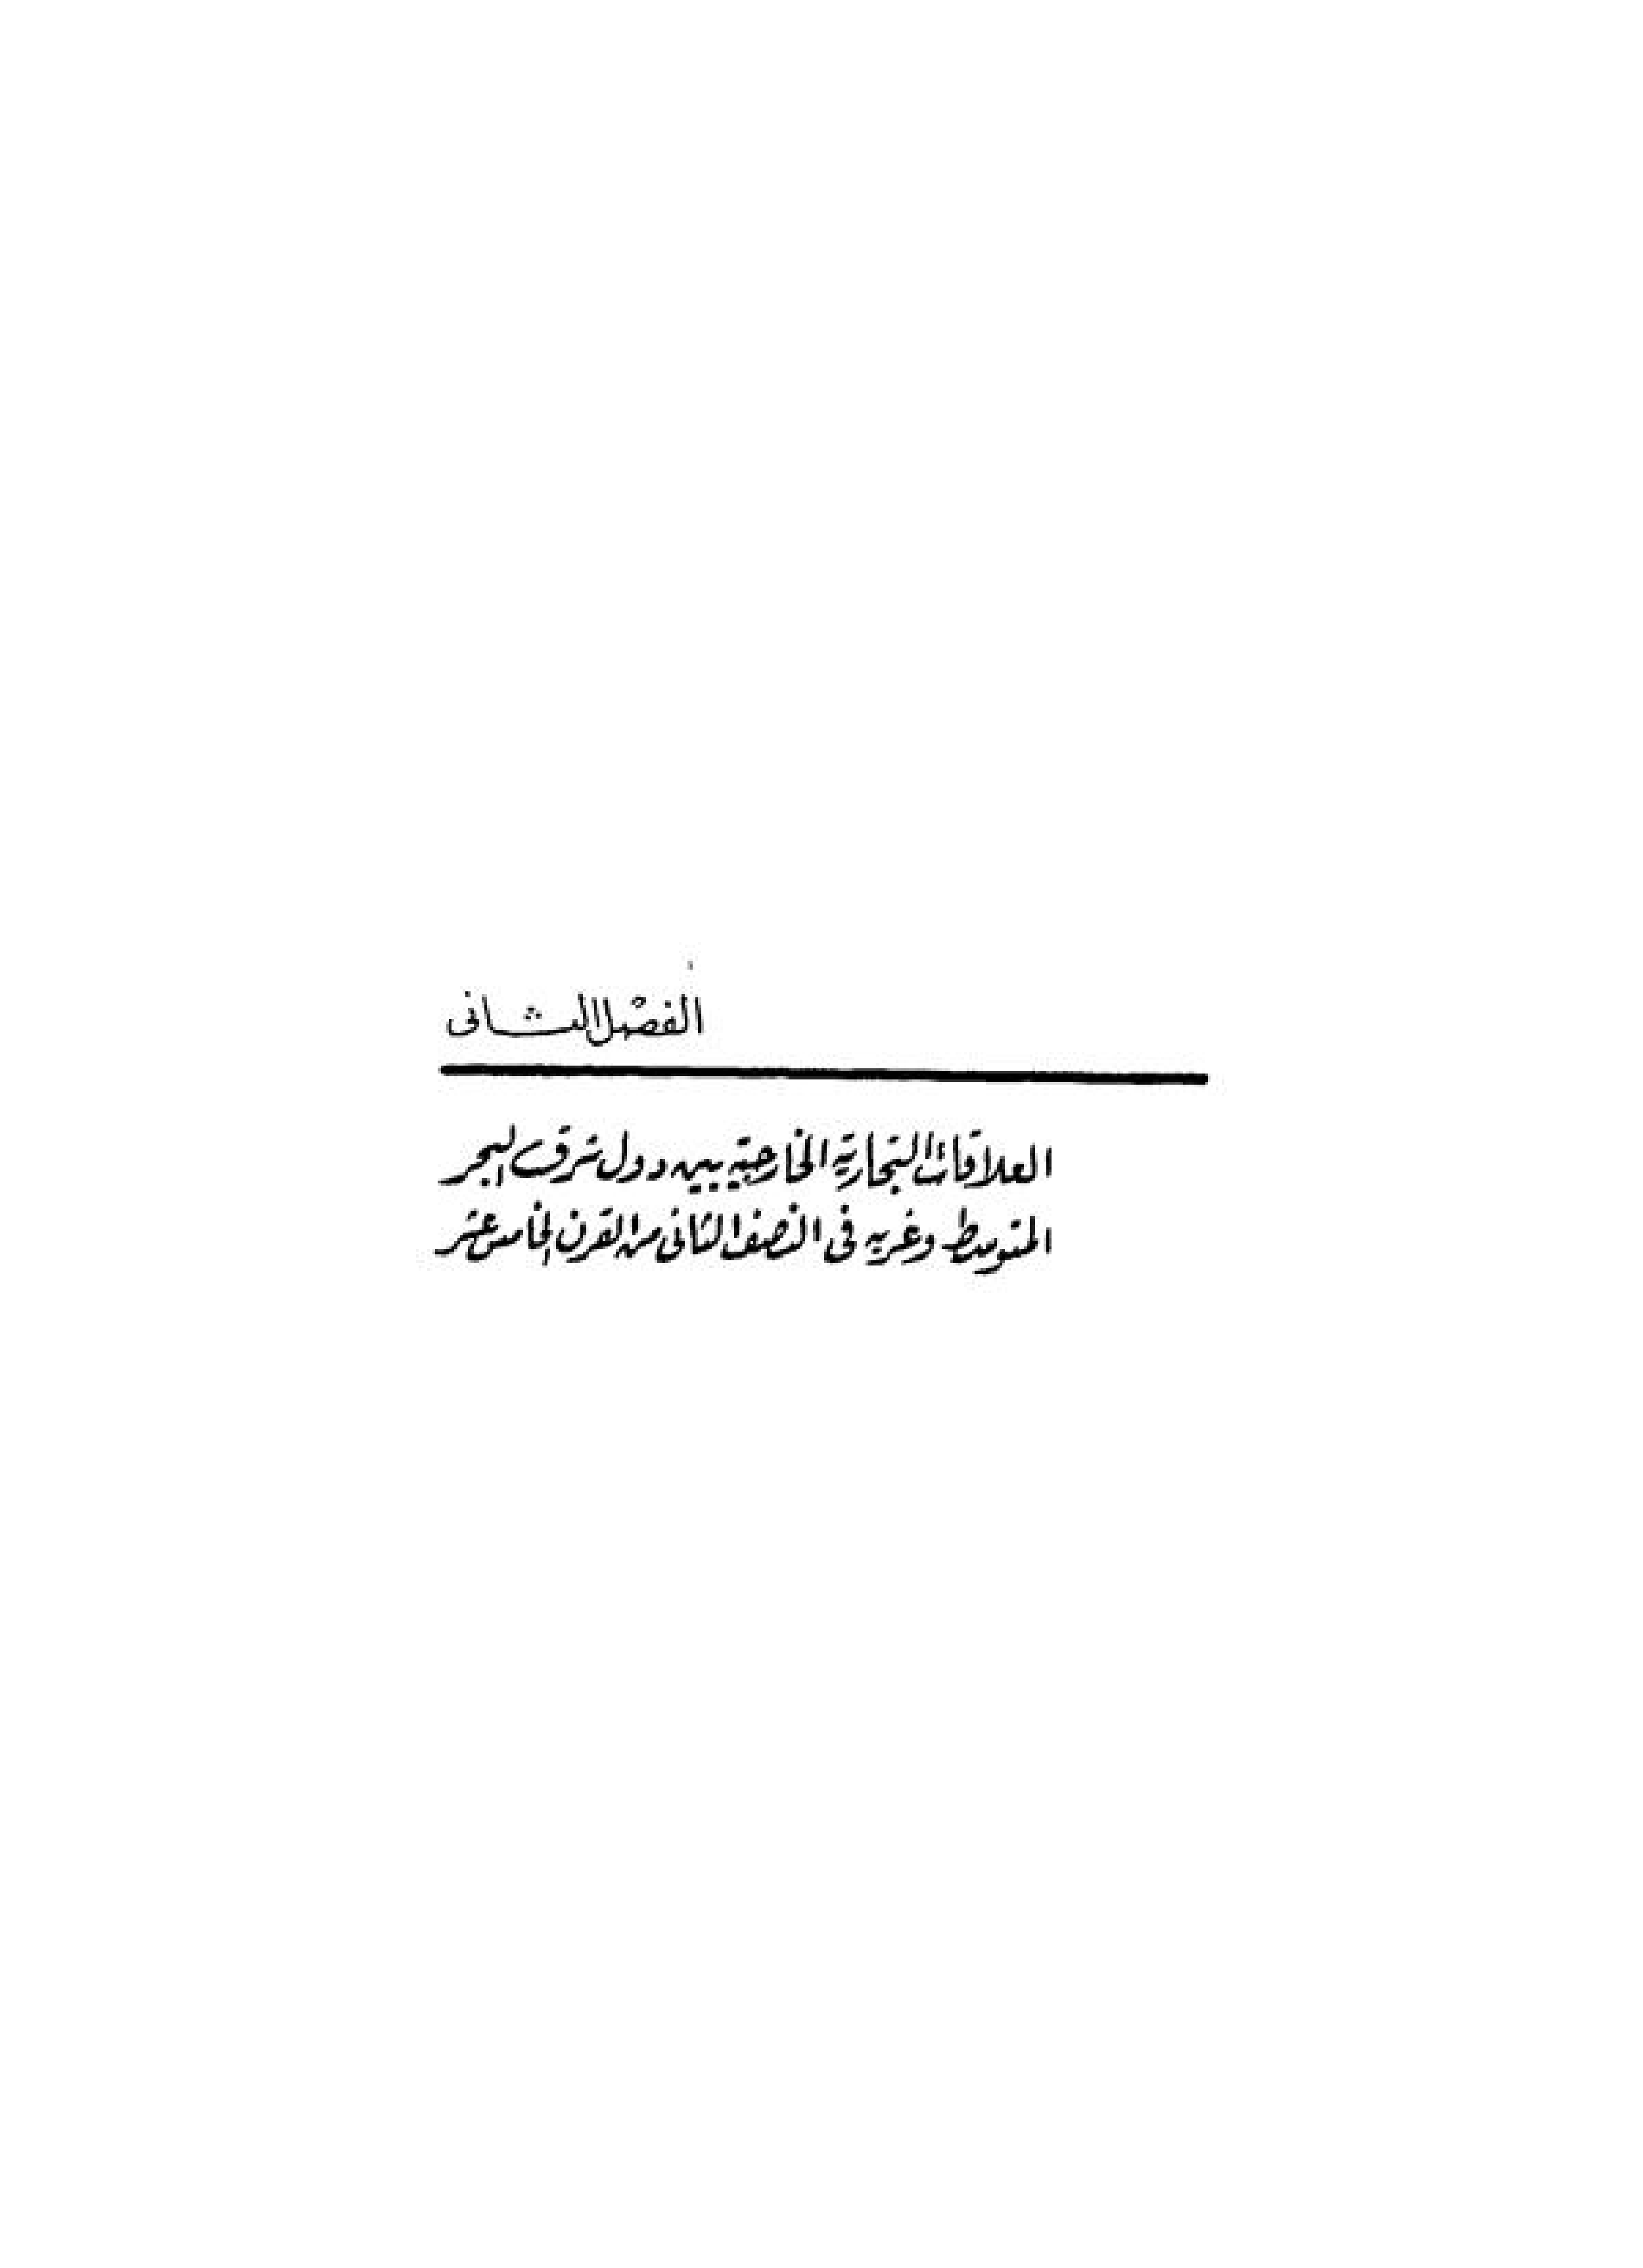 الفصل الثانى
العلاقات التجارية الخارجية بين دول شرق البحر
المتوسط وغربه فى النصف الثانى من القرن الخامس عشر